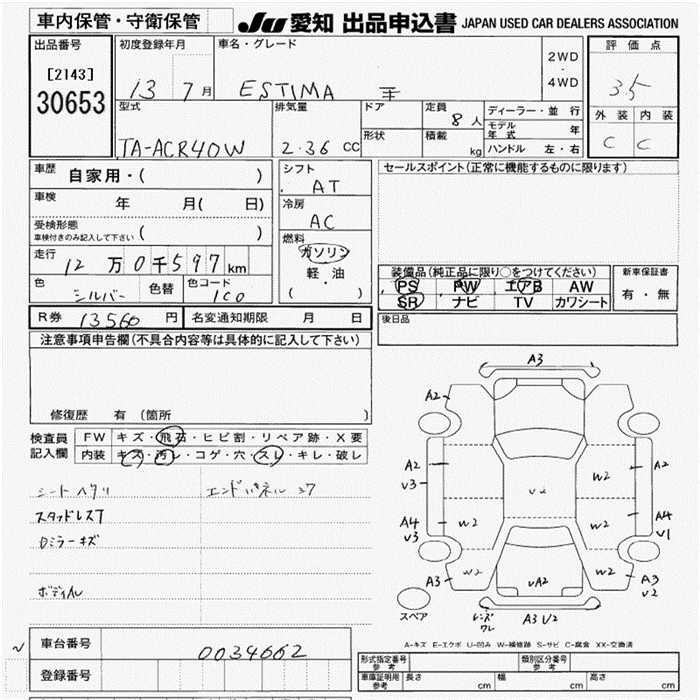 車内保管・守衛保管
JU 愛知 出品申込書 JAPAN USED CAR DEALERS ASSOCIATION
出品番号
[2143]
30653
初度登録年月
13 7月
車名・グレード
ESTIMA
2WD
・
4WD
評価点
3.5
外装 内装
C C
型式
TA-ACR40W
排気量
2.36 CC
ドア
形状
定員
8人
積載
kg
ディーラー・並行
モデル年式 年
ハンドル 左・右
車歴
自家用・( )
車検
年 月( 日)
受検形態
車検付きのみ記入して下さい ( )
走行
12万0千597km
色
シルバー
色替
色コード
1C0
シフト
AT
冷房
AC
燃料
ガソリン
軽・油
( )
セールスポイント(正常に機能するものに限ります)
装備品(純正品に限り○をつけてください)
PS PW エアB AW
SR ナビ TV カワシート
新車保証書
有・無
後日品
R券 13560円
名変通知期限 月 日
注意事項申告欄(不具合内容等は具体的に記入して下さい)
修復歴 有(箇所 )
検査員
記入欄
FW キズ・飛石・ヒビ割・リペア跡・X要
内装 キズ・汚レ・コゲ・穴・スレ・キレ・破レ
シートヘタリ
エンドパネル
スタッドレス
Dミラーキズ
ボディ
A3
A2
A2
V3
A2
W2
V2
A4
V3
W2
W2
A4
V1
A3
W2
VA2
W2
A3
V2
レンズ
ワレ
A3 V2
スペア
A-キズ E-エクボ U-凹み W-補修跡 S-サビ C-腐食 XX-交換済
車台番号
0034662
登録番号
形式指定番号
参考
類別区分番号
参考
車庫証明用
参考
長さ cm
幅 cm
高さ cm